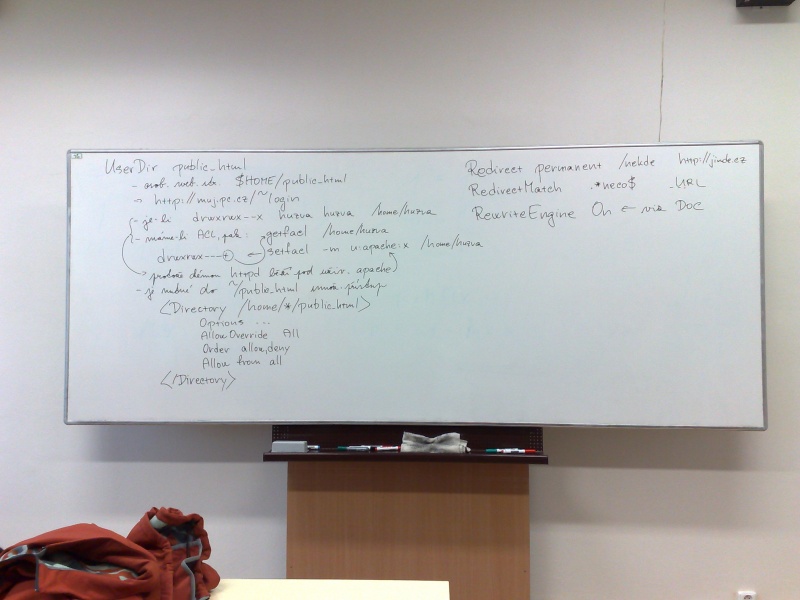 UserDir public_html
- osob. web. str. $HOME/public_html
→ http://muj.pc.cz/~login
- je-li drwxrwx--x huzva huzva /home/huzva
- máme-li ACL, pak: getfacl /home/huzva
drwxrwx---+ setfacl -m u:apache:x /home/huzva
protože démon httpd běží pod uživ. apache
- je nutné do ~/public_html umož. přístup
<Directory /home/*/public_html>
Options ...
AllowOverride All
Order allow,deny
Allow from all
</Directory>
Redirect permanent /nekde http://jinde.cz
RedirectMatch .*neco$ URL
RewriteEngine On ← viz DOC